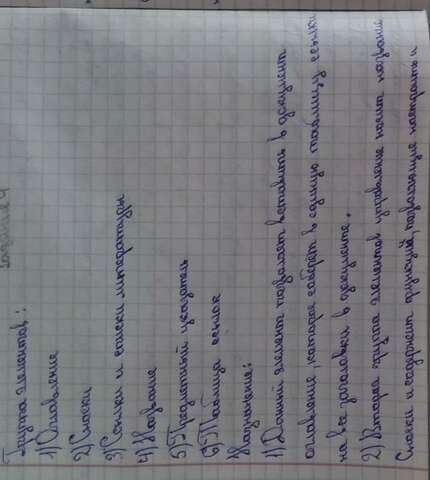 Задание 4
Группа элементов:
1) Оглавление
2) Сноски
3) Ссылки и списки литературы
4) Название
5) Предметный указатель
6) Таблица ссылок
Назначение:
1) Данный элемент позволяет вставить в документ
оглавление, которое соберёт в единую таблицу ссылки
на все заголовки в документе.
2) Вторая группа элементов управления носит название
Сноски и содержит функции, позволяющие настроить и